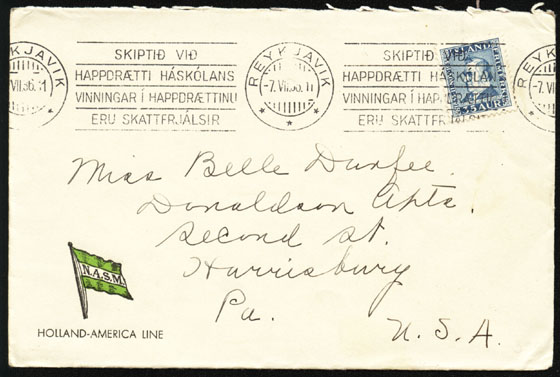 KJAVIK
VII.36.11
SKIPTIÐ VIÐ
HAPPDRÆTTI HÁSKÓLANS
VINNINGAR Í HAPPDRÆTTINU
ERU SKATTFRJÁLSIR
REYKJAVIK
-7.VII.36.11
SKIPTIÐ VIÐ
HAPPDRÆTTI HÁSKÓLAN
VINNINGAR Í HAPPDRÆTTI
ERU SKATTFRJÁLSIR
ÍSLAND
25 AURAR
REYK
-7. VI
Miss Belle Durfee.
Donaldson Apts.
Second St.
Harrisburg
Pa.
U.S.A.
N.A.S.M.
HOLLAND-AMERICA LINE